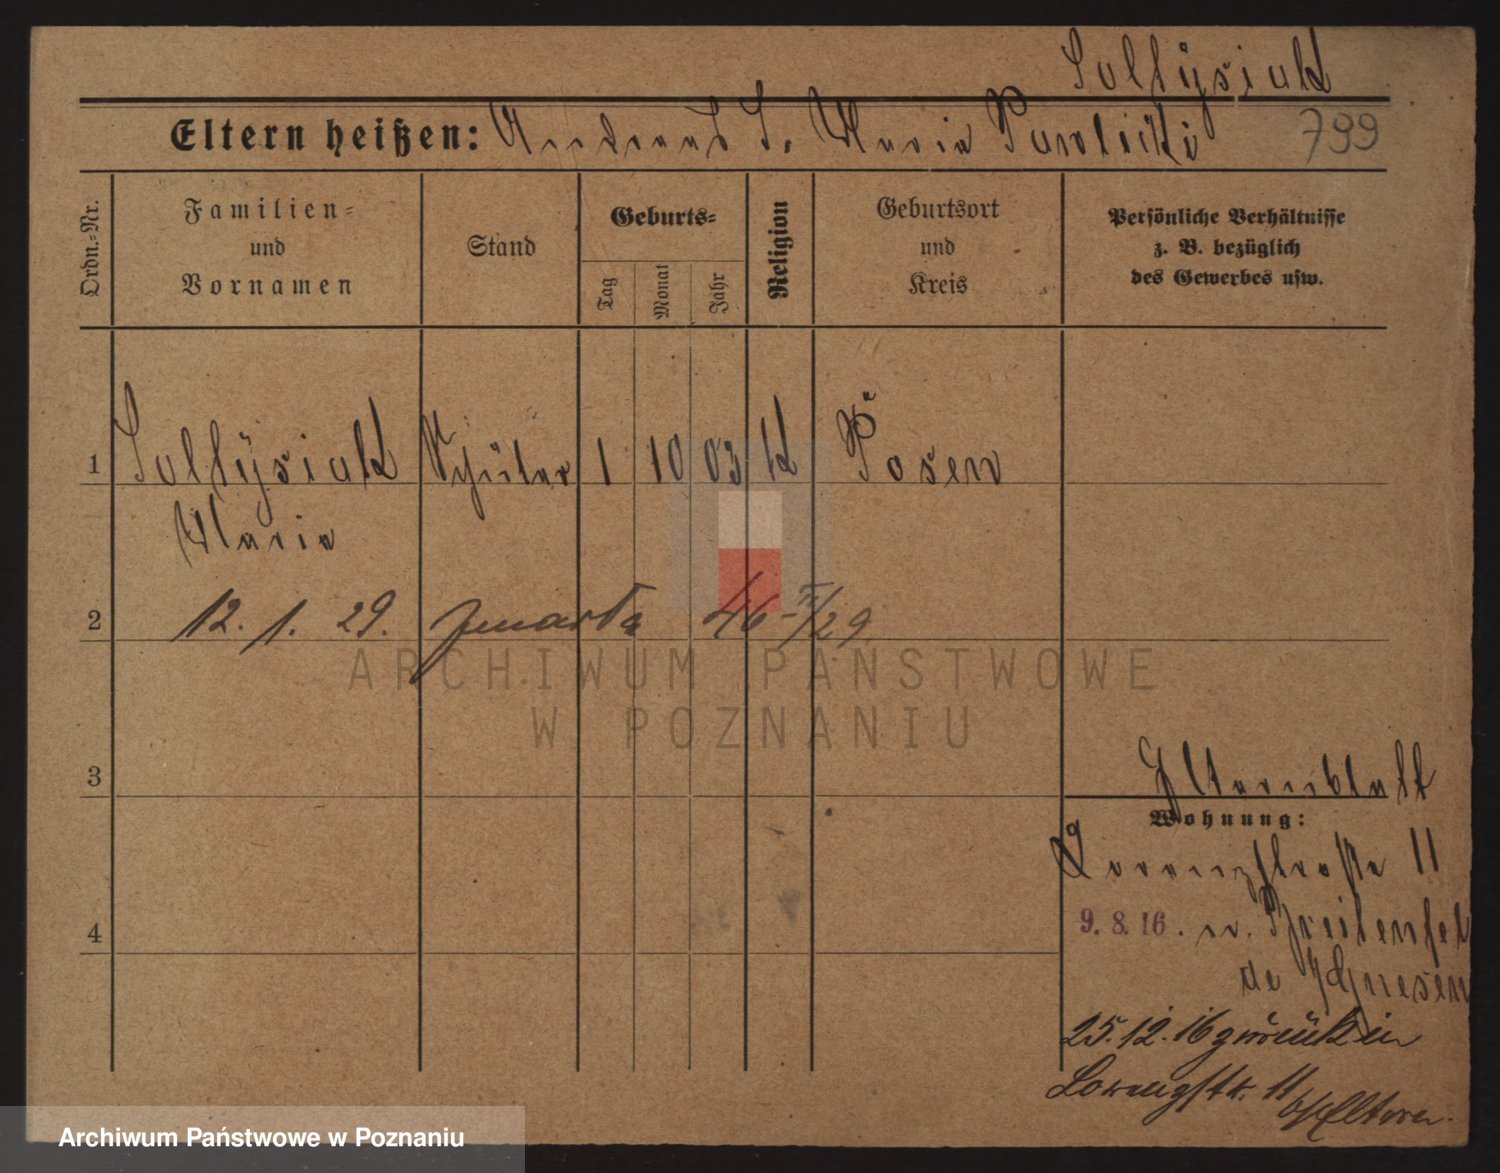 Soltysiak
Eltern heißen: Andreas S. Maria Pawlicki 799
Ordn.=Nr.
Familien=
und
Vornamen
Stand
Geburts=
Tag
Monat
Jahr
Religion
Geburtsort
und
Kreis
Persönliche Verhältnisse
z. B. bezüglich
des Gewerbes usw.
1 Soltysiak Schüler 1 10 03 K Posen
Maria
2 12. 1. 29. zmarła 46-II/29
3 Elternblatt
Wohnung:
Lorenzstraße 11
4 9. 8. 16. n. Breitenfel
de Gnesen
25.12.16 zurück in
Lorenzstr. 11
b/Eltern.
ARCHIWUM PAŃSTWOWE
W POZNANIU
Archiwum Państwowe w Poznaniu